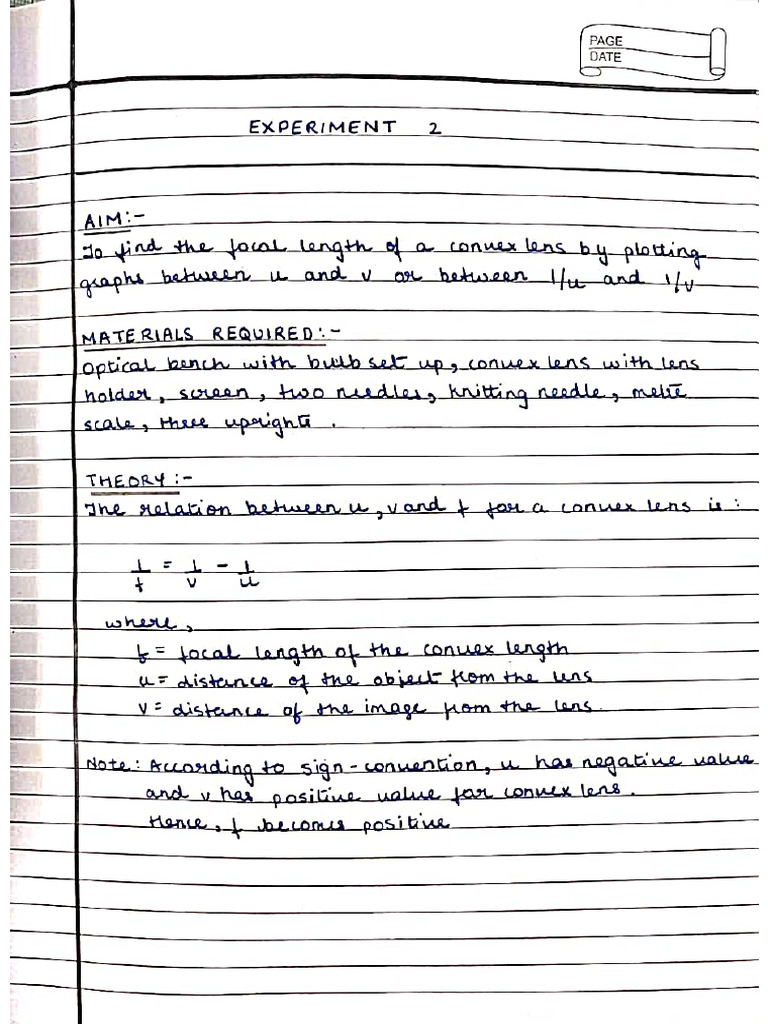 PAGE
DATE
EXPERIMENT 2
AIM:-
To find the focal length of a convex lens by plotting
graphs between u and v or between 1/u and 1/v
MATERIALS REQUIRED:-
Optical bench with bulb set up, convex lens with lens
holder, screen, two needles, knitting needle, metre
scale, three uprights.
THEORY:-
The relation between u, v and f for a convex lens is:
1/f = 1/v - 1/u
where,
f = focal length of the convex length
u = distance of the object from the lens
v = distance of the image from the lens.
Note: According to sign-convention, u has negative value
and v has positive value for convex lens.
Hence, f becomes positive